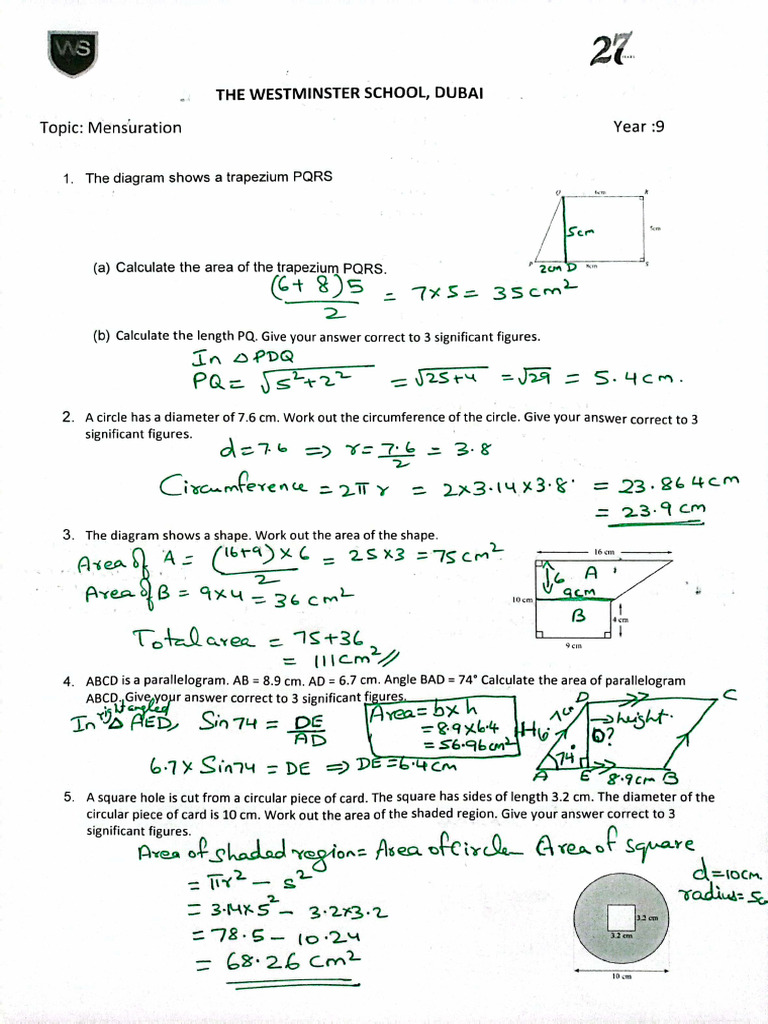 WS
27
THE WESTMINSTER SCHOOL, DUBAI
Topic: Mensuration
Year :9
1. The diagram shows a trapezium PQRS
Q 6cm R
5cm
5cm
P 2cm D 8cm S
(a) Calculate the area of the trapezium PQRS.
(6+ 8)5 = 7×5 = 35cm²
2
(b) Calculate the length PQ. Give your answer correct to 3 significant figures.
In △PDQ
PQ = √5²+2² = √25+4 = √29 = 5.4cm.
2. A circle has a diameter of 7.6 cm. Work out the circumference of the circle. Give your answer correct to 3
significant figures.
d=7.6 ⇒ r= 7.6 = 3.8
2
Circumference = 2πr = 2×3.14×3.8 = 23.864cm
= 23.9 cm
3. The diagram shows a shape. Work out the area of the shape.
Area of A = (16+9)×6 = 25×3 = 75cm²
2
Area of B = 9×4 = 36 cm²
Total area = 75+36
= 111cm²
16 cm
6 A
9cm
10 cm
B
4 cm
9 cm
4. ABCD is a parallelogram. AB = 8.9 cm. AD = 6.7 cm. Angle BAD = 74° Calculate the area of parallelogram
ABCD. Give your answer correct to 3 significant figures.
right angled
In △ AED, Sin74 = DE
AD
6.7 × Sin74 = DE ⇒ DE=6.4cm
Area = b×h
= 8.9×6.4
= 56.96cm²
D C
→height.
74°
A E 8.9cm B
5. A square hole is cut from a circular piece of card. The square has sides of length 3.2 cm. The diameter of the
circular piece of card is 10 cm. Work out the area of the shaded region. Give your answer correct to 3
significant figures.
Area of shaded region = Area of Circle - Area of square
= πr² - s²
= 3.14×5² - 3.2×3.2
= 78.5 - 10.24
= 68.26 cm²
d=10cm
radius=5c
3.2 cm
3.2 cm
10 cm